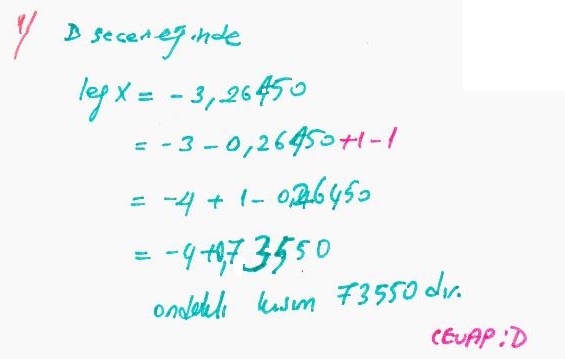 4/ D seceneğinde
log x = -3,26450
= -3 - 0,26450 +1 -1
= -4 + 1 - 0,26450
= -4 + 0,73550
ondalıklı kısım 73550 dir.
CEVAP: D